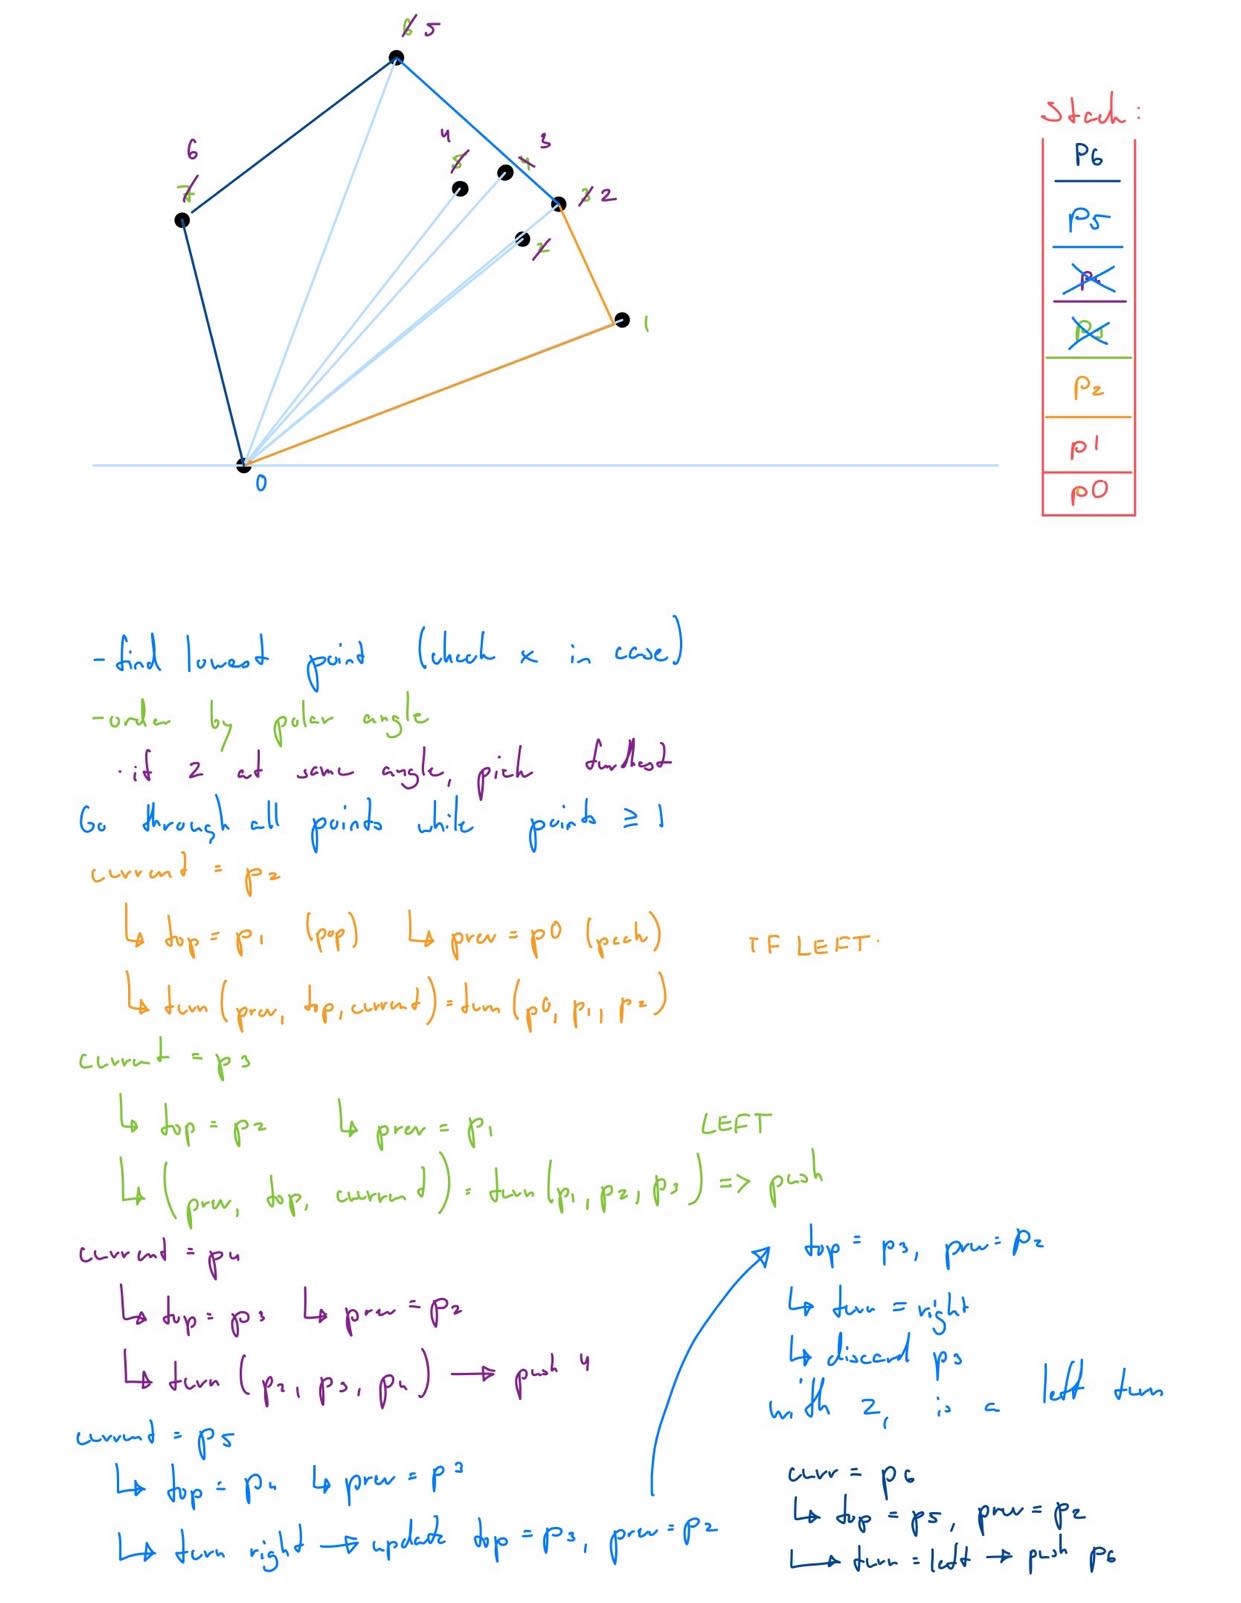 6 5
6
7
4
5
3
4
3 2
2
1
0
Stack:
P6
P5
P2
P1
P0
- find lowest point (check x in case)
- order by polar angle
· if 2 at same angle, pick furthest
Go through all points while points ≥ 1
current = p2
↳ top = p1 (pop) ↳ prev = p0 (peek) IF LEFT
↳ turn (prev, top, current) = turn (p0, p1, p2)
current = p3
↳ top = p2 ↳ prev = p1
LEFT
↳ (prev, top, current) = turn (p1, p2, p3) => push
current = p4
↳ top = p3 ↳ prev = p2
↳ turn (p2, p3, p4) → push 4
current = p5
↳ top = p4 ↳ prev = p3
↳ turn right → update top = p3, prev = p2
top = p3, prev = p2
↳ turn = right
↳ discard p3
with 2, is a left turn
curr = p6
↳ top = p5, prev = p2
↳ turn = left → push p6